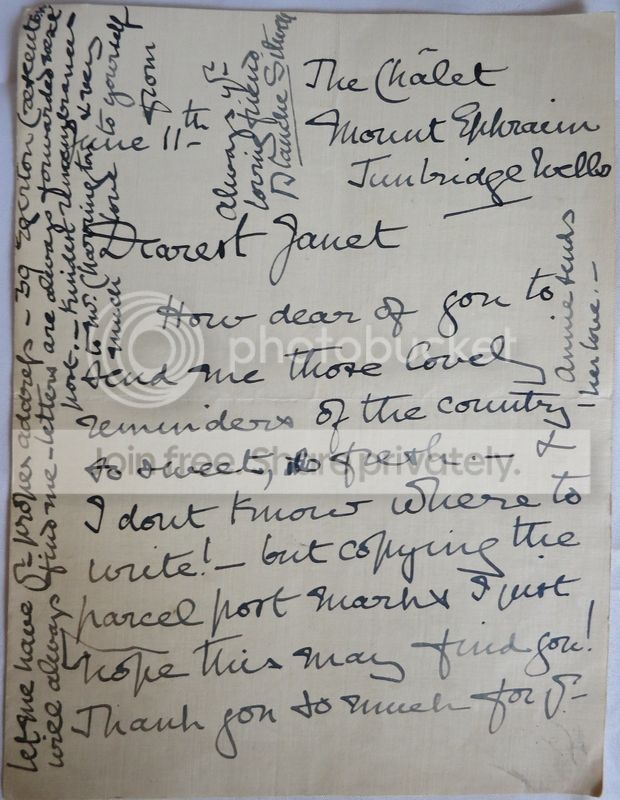 The Châlet
Mount Ephraim
Tunbridge Wells
June 11th
Dearest Janet
How dear of you to
send me those lovely
reminders of the country
so sweet, so fresh. — &
I dont know where to
write! — but copying the
parcel post marks I just
hope this may find you!
Thank you so much for yr
let me have yr proper address — 39 Egerton Crescent
will always find me — letters are always forwarded here
post. — Kindest remembrances
to Mr. & very
much love to yourself
from
always yr
loving friend
Blanche
Annie sends
her love. —
photobucket
Join free. Share privately.